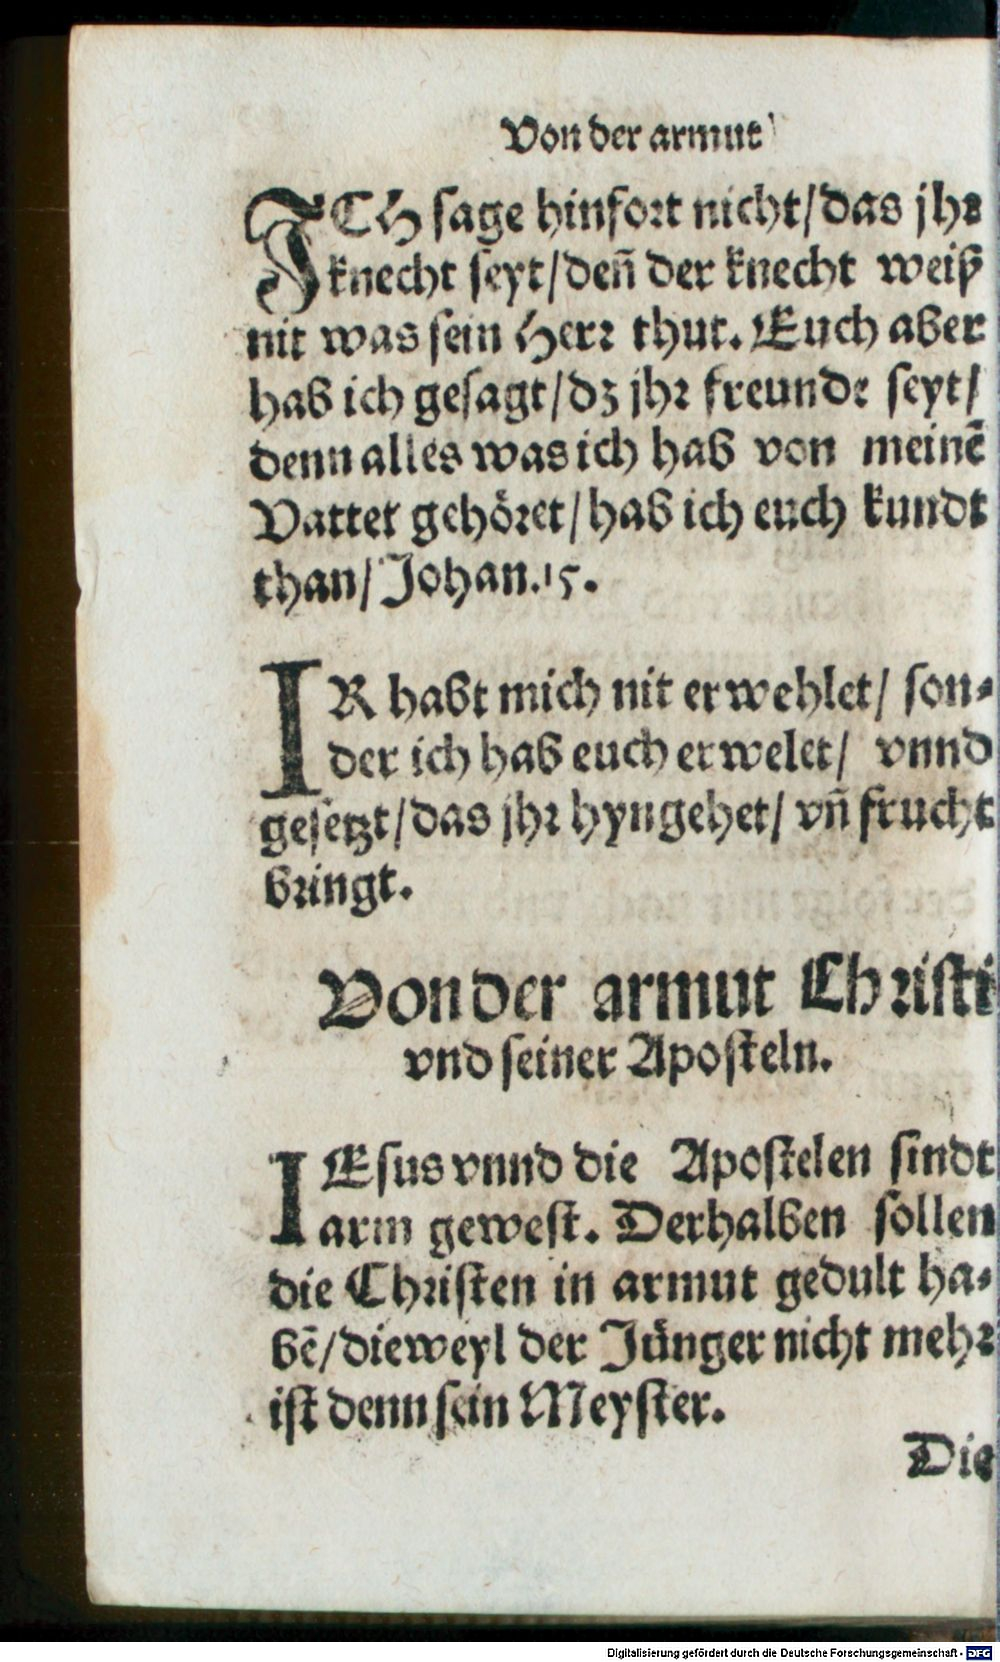 Von der armut
ICH sage hinfort nicht/das jhr
knecht seyt/deñ der knecht weiß
nit was sein Herr thut. Euch aber
hab ich gesagt/dz jhr freunde seyt/
denn alles was ich hab von meinē
Vatter gehöret/hab ich euch kundt
than/Johan.15.
IR habt mich nit erwehlet/ son-
der ich hab euch erwelet/ vnnd
gesetzt/das jhr hyngehet/ vñ frucht
bringt.
Von der armut Christi
vnd seiner Aposteln.
IEsus vnnd die Apostelen sindt
arm gewest. Derhalben sollen
die Christen in armut gedult ha-
bē/dieweyl der Jünger nicht mehr
ist denn sein Meyster.
Die
Digitalisierung gefördert durch die Deutsche Forschungsgemeinschaft - DFG